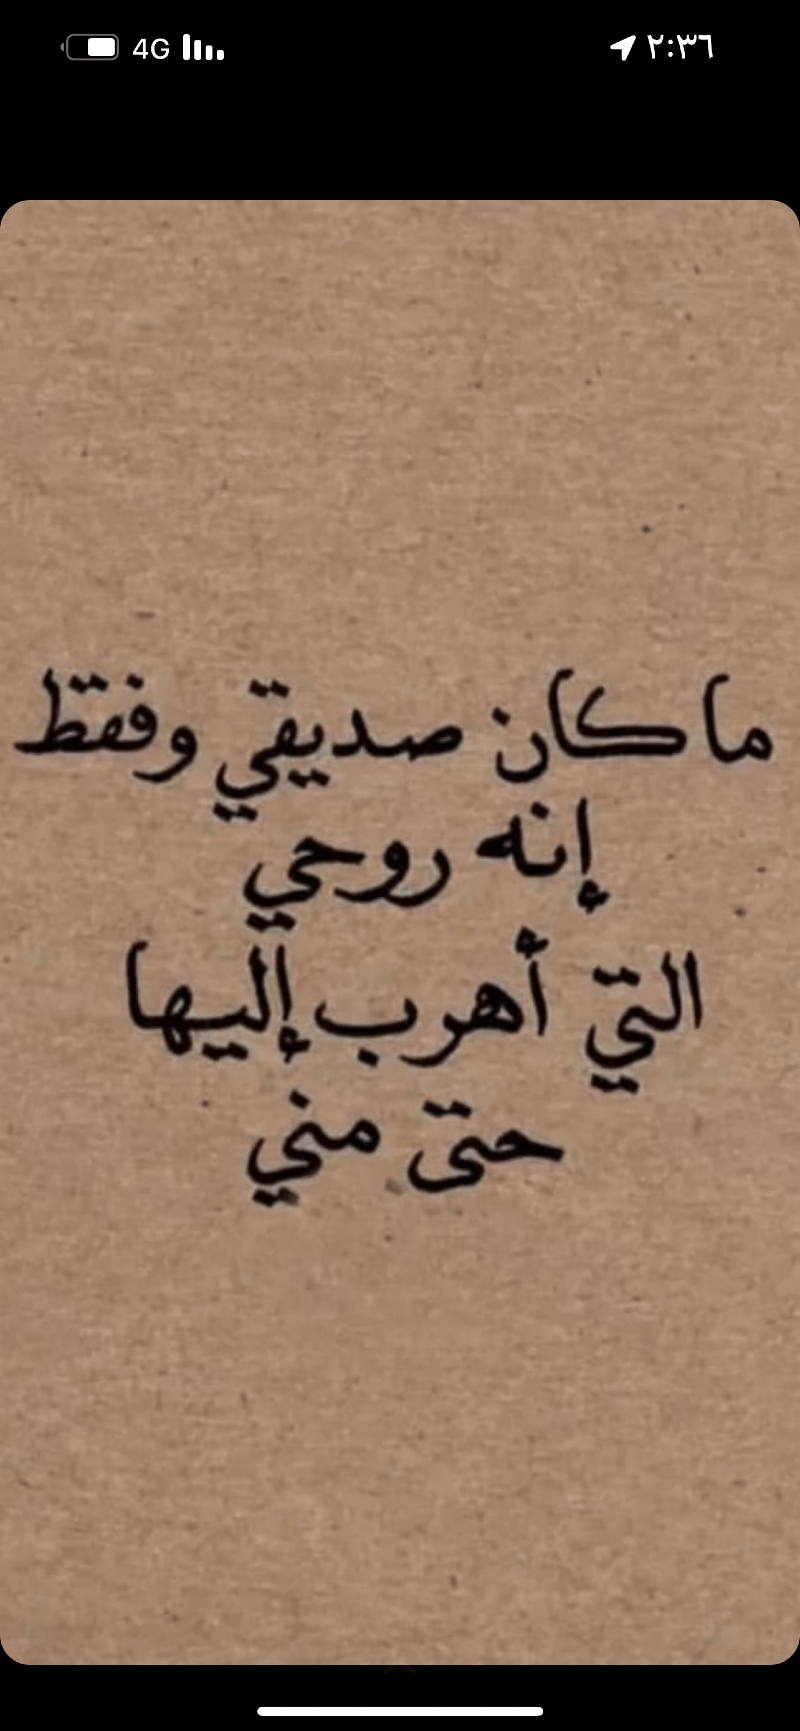 4G ٢:٣٦
ما كان صديقي وفقط
إنه روحي
التي أهرب إليها
حتى مني